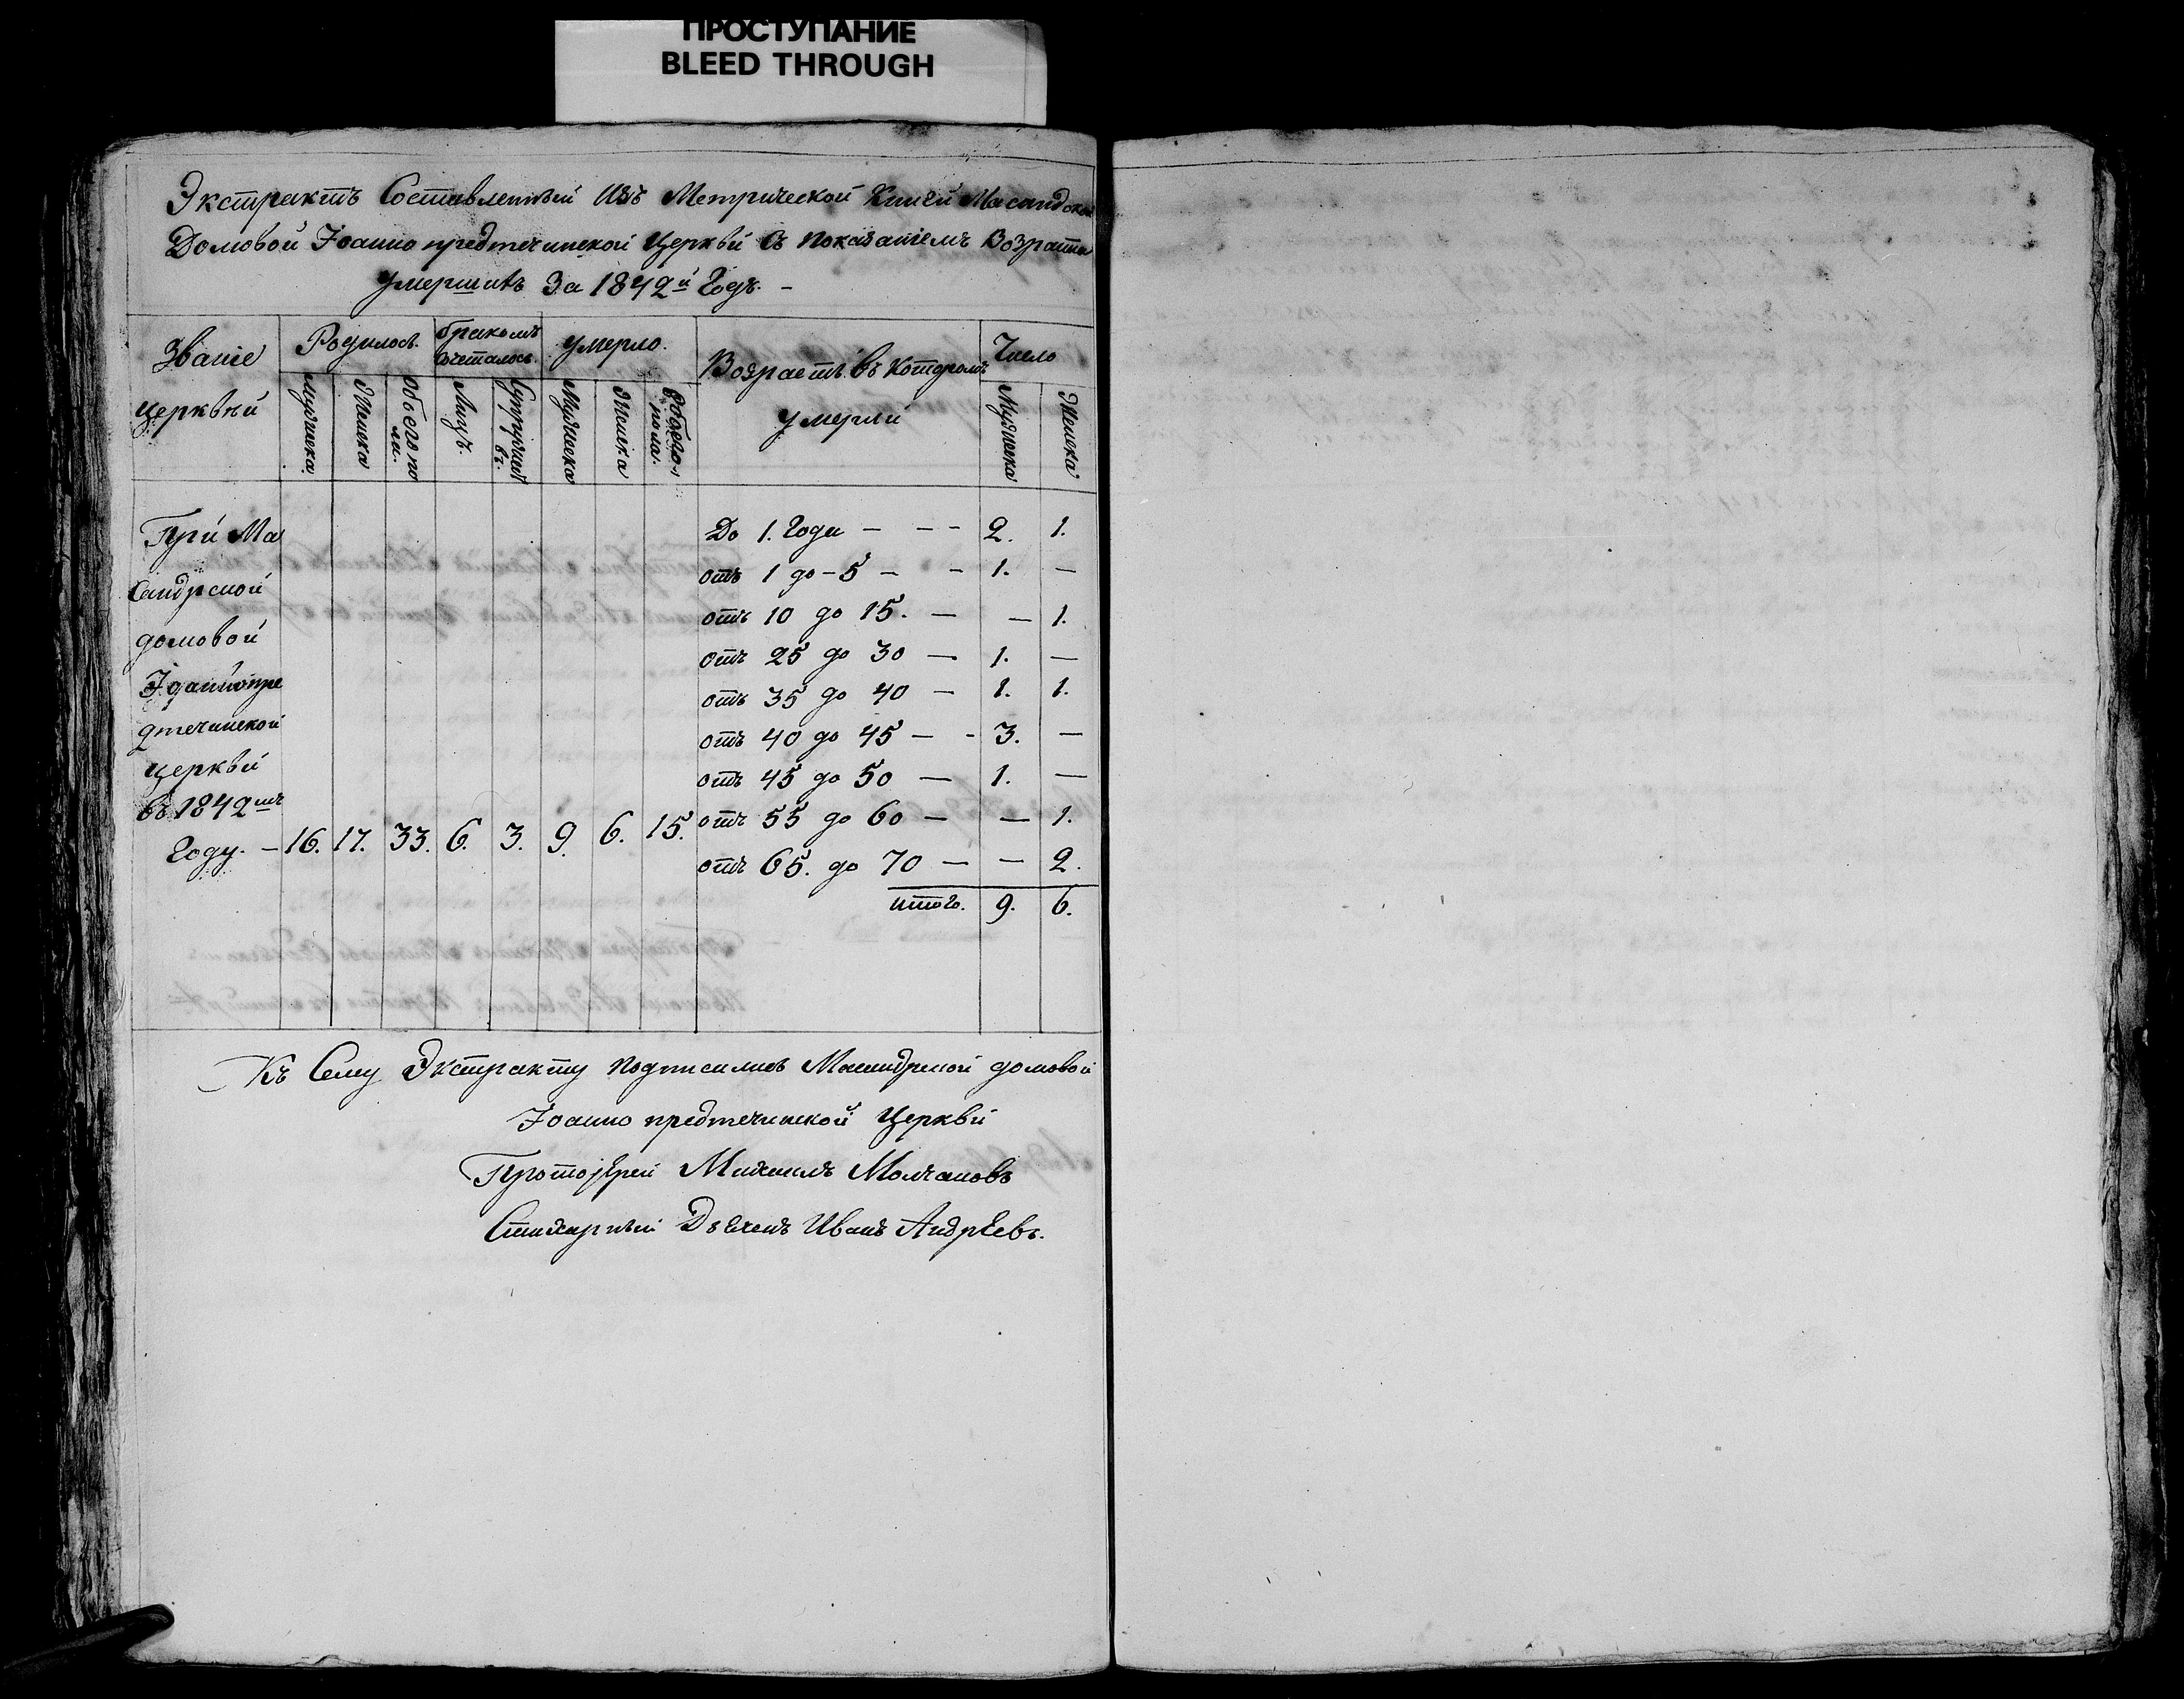 ПРОСТУПАНИЕ
BLEED THROUGH
Экстрактъ Составленный Изъ Метрической Книги Масандской
Домовой Іоанно предтечинской Церквй Съ показаніемъ Возраста
умершихъ За 1842й Годъ. –
Званіе церквѣй
Родилось.
бракомъ Сочеталось.
умерло.
Возрастъ въ котором умерлй
Число
Мужеска
Женска
Обоего по ла.
Лицъ.
Супружес въ.
Мужеска
Женска
Обоего пола.
Мужеска
Женска
Прй Ма
Сандрской
домовой
Іоаннопре
дтечинской
церквй
въ 1842мъ
Году. – 16. 17. 33. 6. 3. 9. 6. 15.
До 1. Года – – – 2. 1.
отъ 1 до – 5 – – 1. —
отъ 10 до 15. — — 1.
отъ 25 до 30 — 1. —
отъ 35 до 40 — 1. 1.
отъ 40 до 45 — - 3. —
отъ 45 до 50 — 1. —
отъ 55 до 60 — — 1.
отъ 65. до 70 — — 2.
итого. 9. 6.
Къ Сему Экстракту подписались Масандрской домовой
Іоанно предтечинской Церквй
Протоjерей Михаилъ Молчановъ
Стихарный Дьячекъ Иванъ АндрЕевъ.